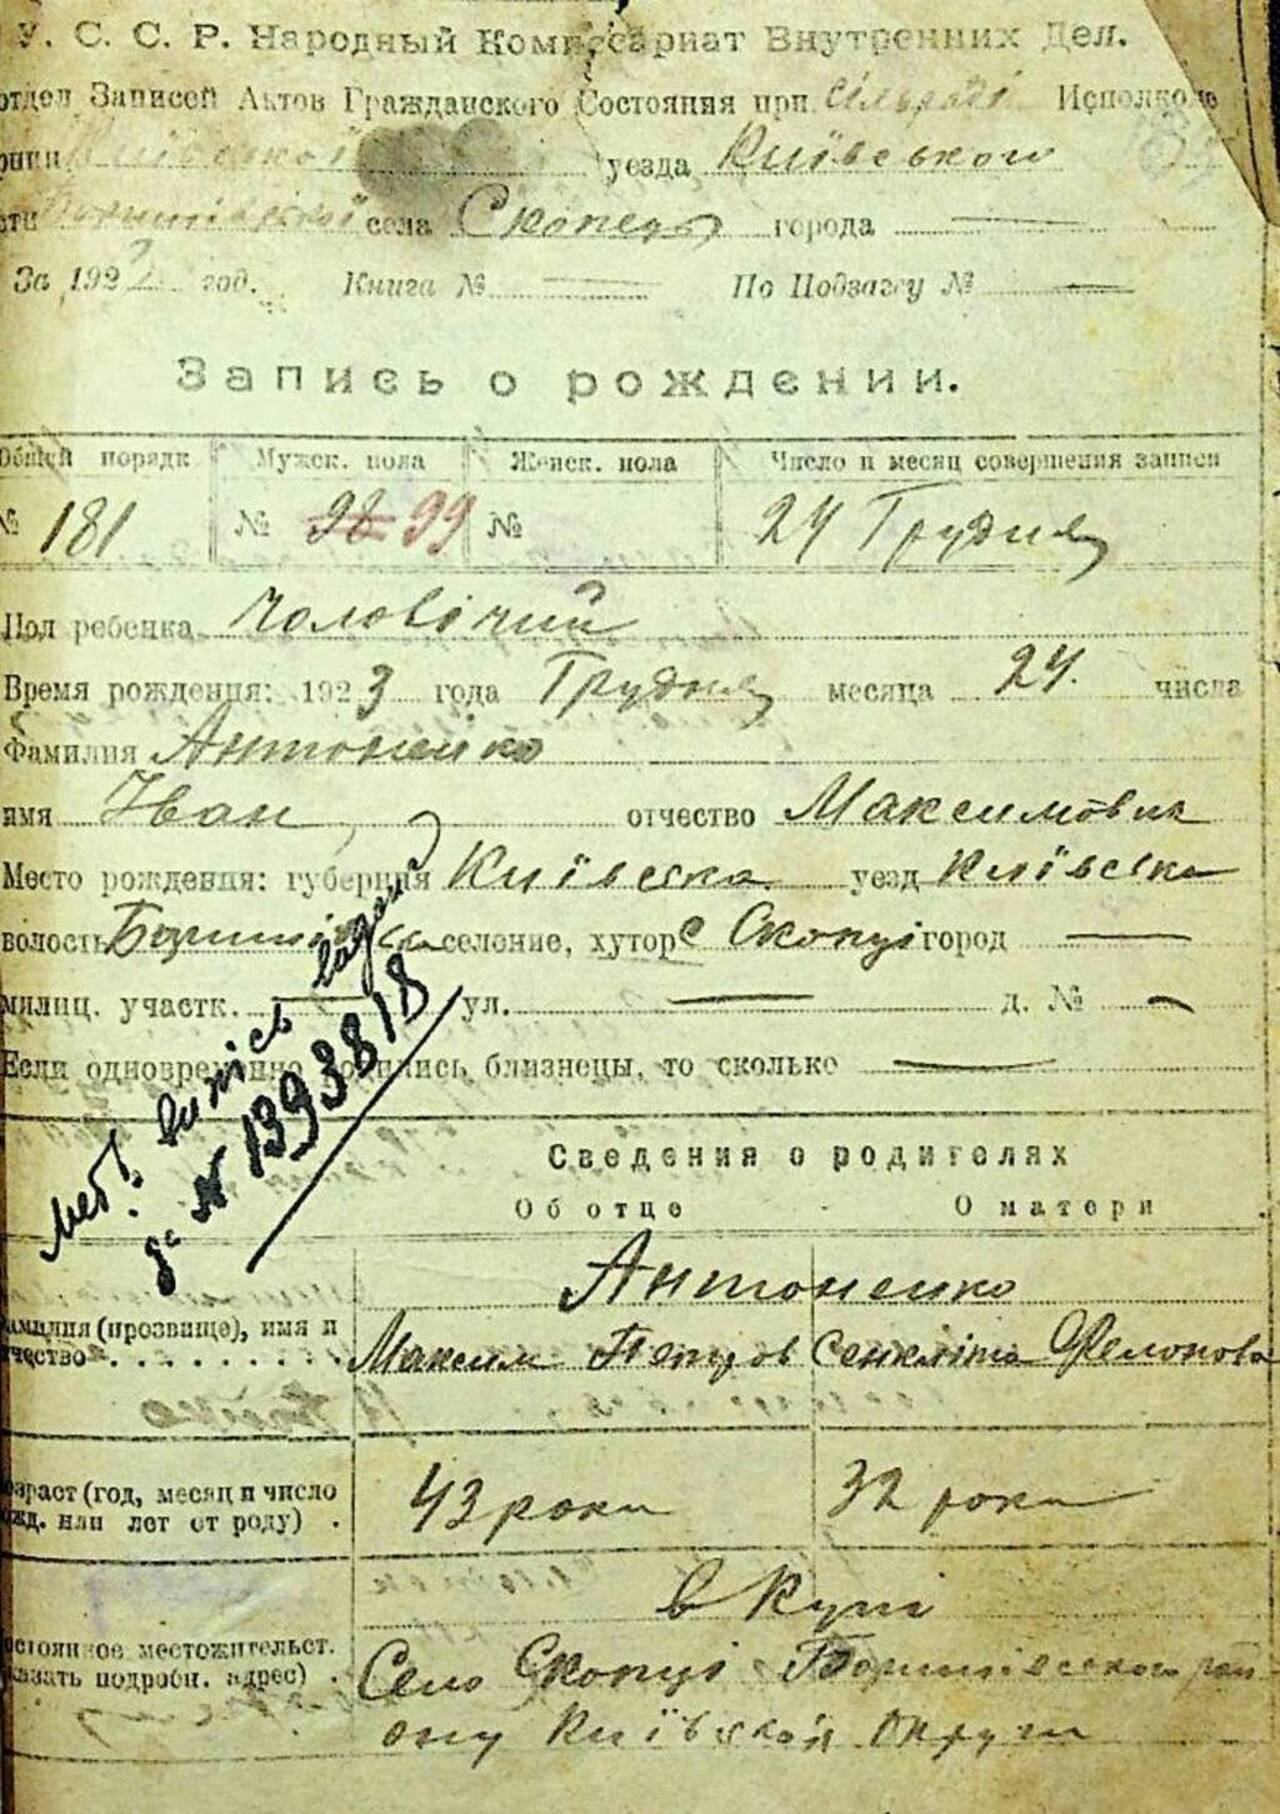 У. С. С. Р. Народный Комиссариат Внутренних Дел.
отдел Записей Актов Гражданского Состояния при сільраді Исполкоме
Київської уезда Київського
села Скопець города
За 1923 год. Книга № По Подзагсу №
Запись о рождении.
Общей порядк Мужск. пола Женск. пола Число и месяц совершения записи
№ 181 № 98 99 № 24 Грудня
Пол ребенка Чоловічий
Время рождения: 1923 года Грудня месяца 24. числа
Фамилия Антоненко
имя Іван отчество Максимович
Место рождения: губерния Київська уезд Київська
волость селение, хутор с Скопці город
милиц. участк. ул. д. №
Если одновременно родились близнецы, то сколько
Мет. випись видан
за № 1393818
Сведения о родителях
Об отце О матери
Антоненко
амилия (прозвище), имя и
чество Максим Петров Сенкліта Филонова
зраст (год, месяц и число
жд. или лет от роду) 43 роки 32 роки
в купі
остоянное местожительст.
казать подробн. адрес) Село Скопці рай-
ону Київської Округи